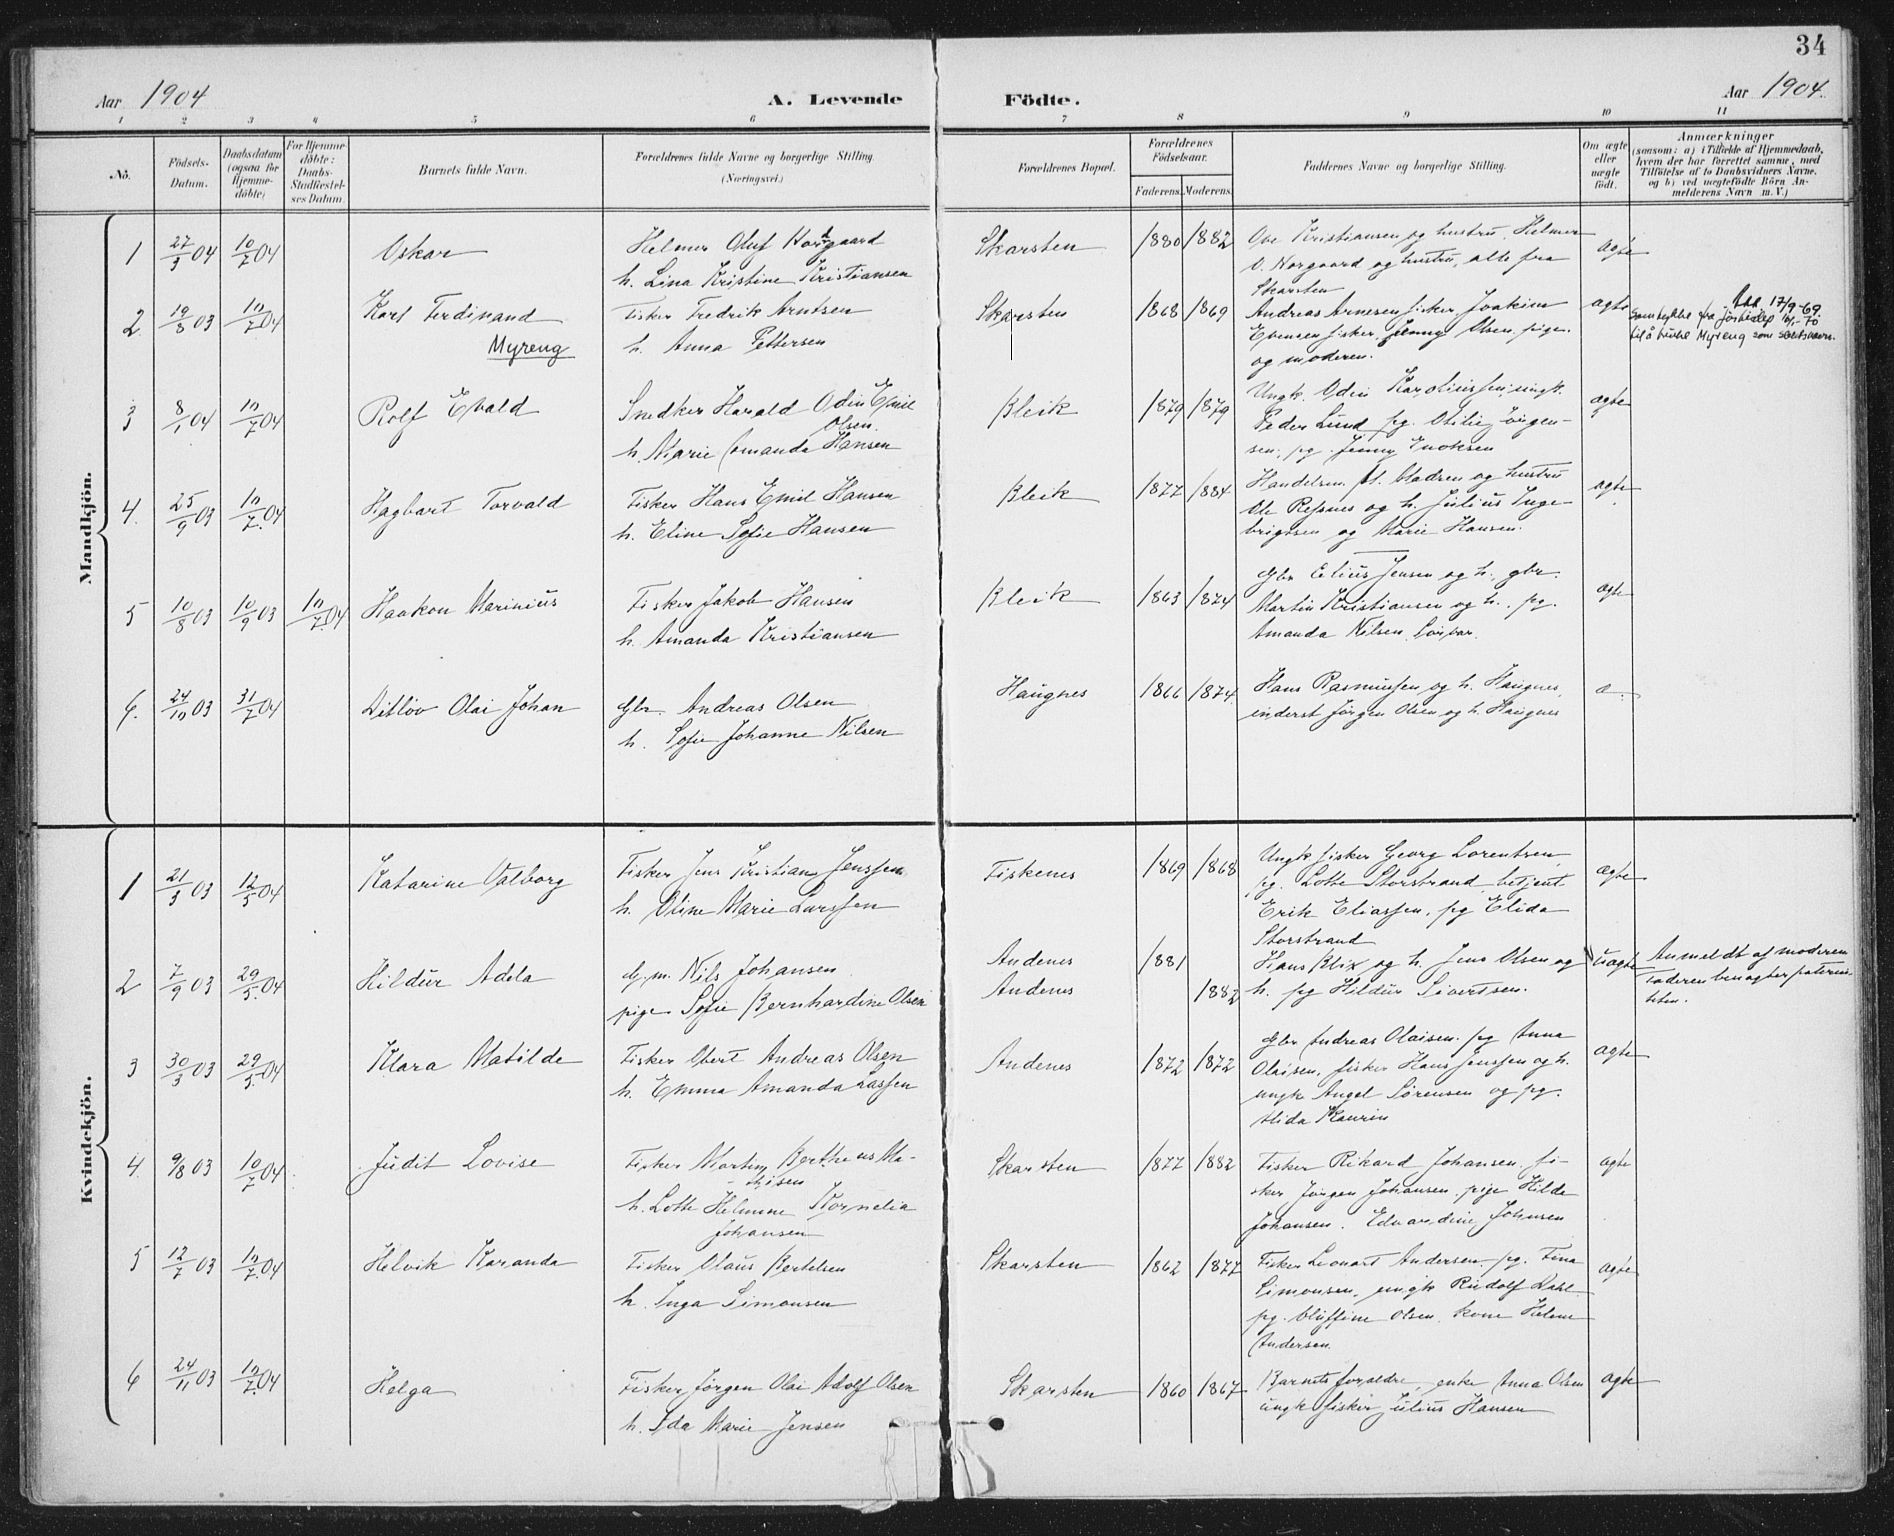 34
Aar 1904 A. Levende Födte. Aar 1904.
1 2 3 4 5 6 7 8 9 10 11
No.
Födsels-
Datum.
Daabsdatum
(ogsaa for
Hjemme-
døbte)
For Hjemme-
døbte:
Daabs-
Stadfæstel-
ses Datum.
Barnets fulde Navn.
Forældrenes fulde Navne og borgerlige Stilling.
(Næringsvei.)
Forældrenes Bopæl.
Forældrenes
Födselsaar.
Faderens. Moderens.
Faddernes Navne og borgerlige Stilling.
Om ægte
eller
uægte
født.
Anmærkninger
(saasom: a) i Tilfælde af Hjemmedaab,
hvem der har forrettet samme, med
Tilföielse af to Daabsvidners Navne,
og b) ved uægtefödte Börn An-
melderens Navn m. V.)
Mandkjön.
1 27/3 04 10/7 04 Oskar
Helmer Oluf Norgaard
h. Lina Kristine Kristiansen
Skarsten 1880 1882
Ove Kristiansen og hustru, Helmer
O. Norgaard og hustru, alle fra
Skarsten
ægte
2 19/8 03 10/7 04 Karl Ferdinand
Myreng
Fisker Fredrik Arntsen
h. Anna Pettersen
Skarsten 1868 1869
Andreas Arnesen fisker Joakim
Evensen fisker, Jenny Olsen, pige
og moderen.
ægte
17/9-69
Samtykke fra
til å bruke Myreng som slektsnavn.
3 8/1 04 10/7 04 Rolf Evald
Snedker Harald Odin Emil
Olsen.
h. Marie Amanda Hansen
Bleik 1879 1879
Ungk. Odin Karoliussen, ungk.
Peder Lund pg. Otilie Jörgen-
sen, pg. Jenny Enoksen
ægte
4. 25/9 03 10/7 04 Hagbart Torvald
Fisker Hans Emil Hansen
h. Eline Sofie Hansen
Bleik 1877 1884
Handelsm. og hustru
Ole Resnes og h. Julius Inge-
brigtsen og Marie Hansen.
ægte
5 10/8 03 10/9 03 10/7 04 Haakon Marinius
Fisker Jakob Hansen
h. Amanda Kristiansen
Bleik 1863 1874
Gbr Edius Jensen og h. gbr.
Martin Kristiansen og h., pg.
Amanda Nilsen
ægte
6. 24/10 03 31/7 04 Ditlöv Olai Johan
Gbr. Andreas Olsen
h. Sofie Johanne Nilsen
Haugnes 1866 1874.
Hans Rasmussen og h. Haugnes,
inderst Jörgen Olsen og h. Haugnes
æ.
Kvindekjön.
1 21/3 03 12/5 04 Katarine Valborg
Fisker Jens Kristian Jenssen
h. Oline Marie Larssen
Fiskenes 1869 1868
Ungk fisker Georg Lorentsen
pg. Lotte Storstrand betjent
Erik Eliassen, pg Elida
Storstrand
ægte
2 7/9 03 29/5 04 Hildur Adela
Nils Johansen
pige Sofie Bernhardine Olsen
Andenes 1881
Andenes 1882
Hans Klix og h. Jens Olsen og
h. pg Hildur Sivertsen.
uægte
Anmeldt af moderen
Faderen benægter paterni-
teten.
3 30/3 03 29/5 04 Klara Matilde
Fisker Obert Andreas Olsen
h. Emma Amanda Lassen
Andenes 1872 1872
Gbr Andreas Olaisen. pg Anna
Olaisen, fisker Hans Jenssen og h.
ungk Angel Sørensen og pg.
Alida Kaurin
ægte
4. 9/8 03 10/7 04 Judit Lovise
Fisker Morten Bertheus Ma-
thisen
h. Lotte Helmine Kornelia
Johansen
Skarsten 1877 1882
Fisker Rikard Johansen. fi-
sker Jörgen Johansen. pige Hilda
Johansen. Edvardine Johnsen
ægte
5 12/7 03 10/7 04 Helvik Karanda
Fisker Olaus Bertelsen
h. Inga Simonsen
Skarsten 1862 1877
Fisker Leonart Andersen, pg. Tina
Simonsen, ungk Rudolf Dahl
pg. Olsen, kone Helene
Andersen
ægte
6 24/11 03 10/7 04 Helga
Fisker Jörgen Olai Adolf Olsen
h. Ida Marie Jensen
Skarsten 1860 1867
Barnets forældre, enke Anna Olsen
ungk fisker Julius Hansen
ægte